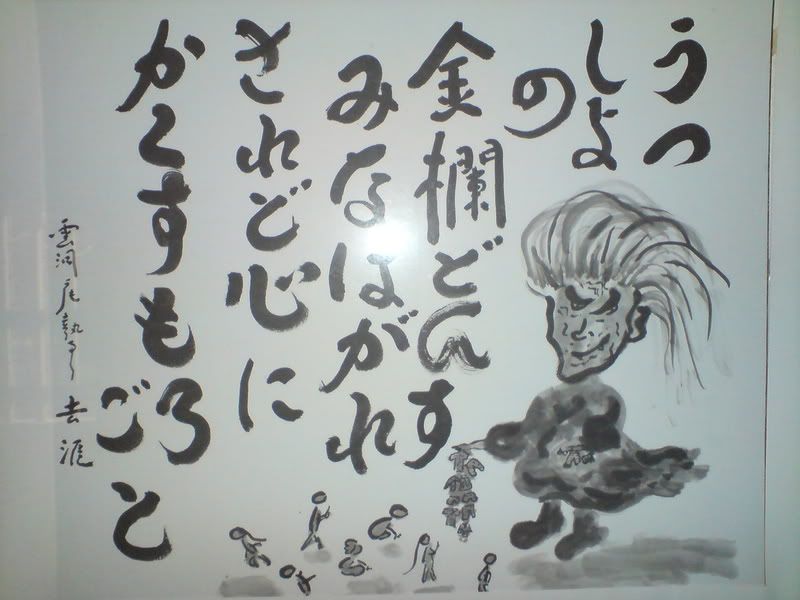 うつ
しよ
の
金襴どんす
みなはがれ
されど心に
かくすもろ
ごと
雲洞